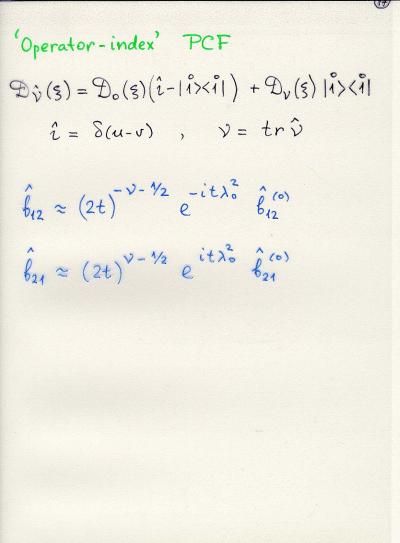 'Operator-index' PCF
𝒟_ν̂(ξ) = 𝒟₀(ξ)(î-|i><i|) + 𝒟_ν(ξ)|i><i|
î = δ(u-v) , ν = tr ν̂
b̂₁₂ ≈ (2t)^{-ν-1/2} e^{-itλ₀²} b̂₁₂^{(0)}
b̂₂₁ ≈ (2t)^{ν-1/2} e^{itλ₀²} b̂₂₁^{(0)}